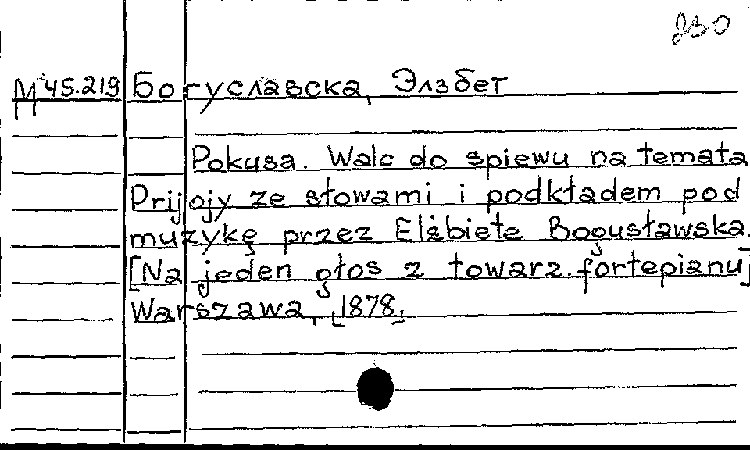 230
M 45.219 Богуславска, Элзбет
Pokusa. Walc do spiewu na temata
Prijojy ze słowami i podkładem pod
muzykę przez Elżbiete Bogusławska.
[Na jeden głos z towarz. fortepianu]
Warszawa, [1878.]